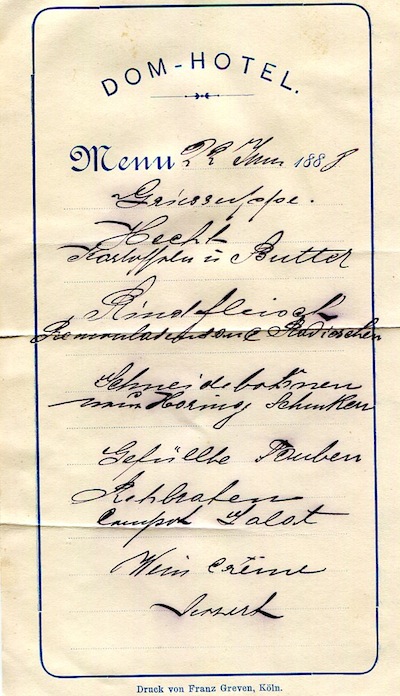 DOM-HOTEL.
Menu 22 Juni 1888
Griessuppe.
Hecht
Kartoffeln u Butter
Rindfleisch
Remouladensauce Radieschen
Schneidebohnen
Häring Schinken
Gefüllte Tauben
Rehbraten
Compot Salat
Wein Crême
Dessert
Druck von Franz Greven, Köln.